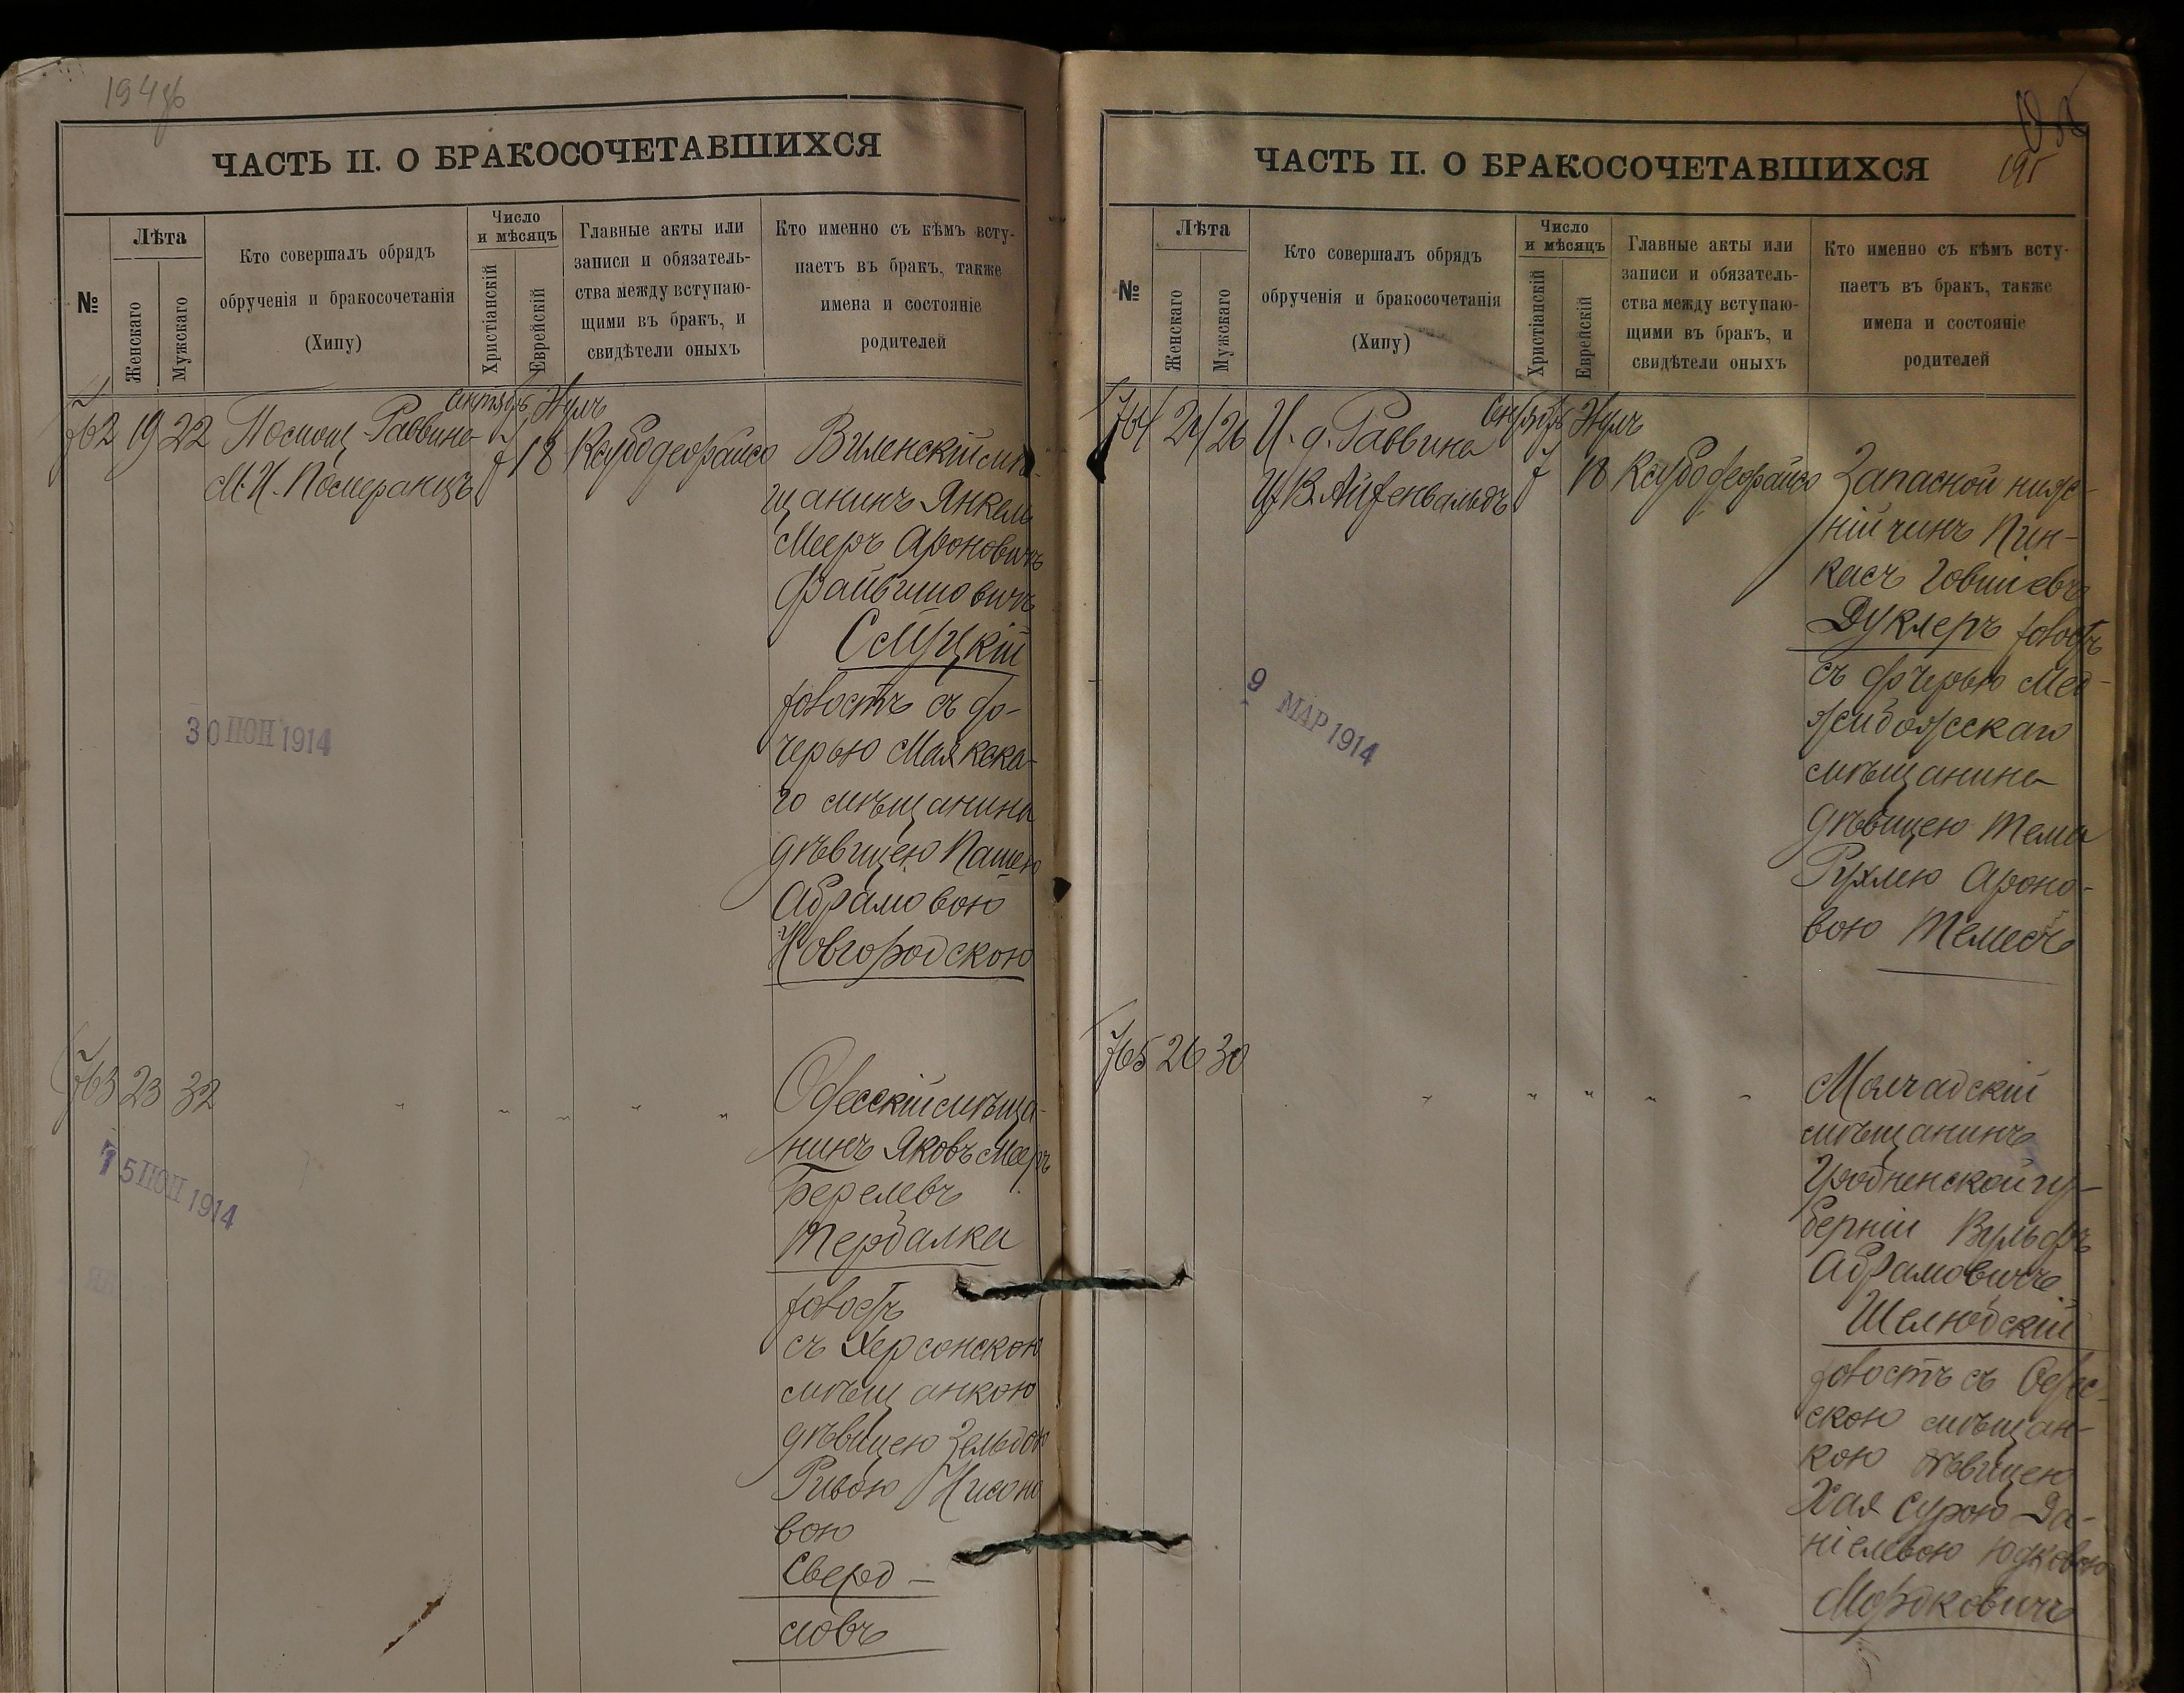 194об
ЧАСТЬ II. О БРАКОСОЧЕТАВШИХСЯ
№
Лѣта
Женскаго
Мужскаго
Кто совершалъ обрядъ
обрученія и бракосочетанія
(Хипу)
Число
и мѣсяцъ
Христіанскій
Еврейскій
Главные акты или
записи и обязатель-
ства между вступаю-
щими въ бракъ, и
свидѣтели оныхъ
Кто именно съ кѣмъ всту-
паетъ въ бракъ, также
имена и состояніе
родителей
762 19 22 Помощ. Раввина
М. И. Померанцъ
Сентябрь
7
Элулъ
18
Виленскій мѣ-
щанинъ Янкель
Мееръ Ароновичъ
Файвишовичъ
Слуцкій
холостъ съ до-
черью Маякска-
го мѣщанина
дѣвицею Пашею
Абрамовою
Новгородскою
30 ІЮН 1914
763 23 32 " " " " "
Одесскій мѣща-
нинъ Яковъ Мееръ
Берелевъ
Тербалка
холостъ
съ Херсонскою
мѣщанкою
дѣвицею Зельдою
Ривою Нисоно
вою
Сверд-
ловъ
15 ІЮЛ 1914
195
ЧАСТЬ II. О БРАКОСОЧЕТАВШИХСЯ
№
Лѣта
Женскаго
Мужскаго
Кто совершалъ обрядъ
обрученія и бракосочетанія
(Хипу)
Число
и мѣсяцъ
Христіанскій
Еврейскій
Главные акты или
записи и обязатель-
ства между вступаю-
щими въ бракъ, и
свидѣтели оныхъ
Кто именно съ кѣмъ всту-
паетъ въ бракъ, также
имена и состояніе
родителей
764 21 26 И. д. Раввина
Айзенвальдъ
Сентябрь
7
Элулъ
18
Запасной ниж-
ній чинъ Пин-
касъ Іовшіевъ
Дуклеръ холостъ
съ дочерью Мед-
жибожсскаго
мѣщанина
дѣвицею Тема
Рухлею Ароно-
вою Темесъ
9 МАР 1914
765 26 30 " " " " "
Молчадскій
мѣщанинъ
Гродненской гу-
берніи Вульфъ
Абрамовичъ
Шелюбскій
холостъ съ Одес-
скою мѣщан-
кою дѣвицею
Хая Сурою Да-
ніелевою Юдковою
Мордковичъ